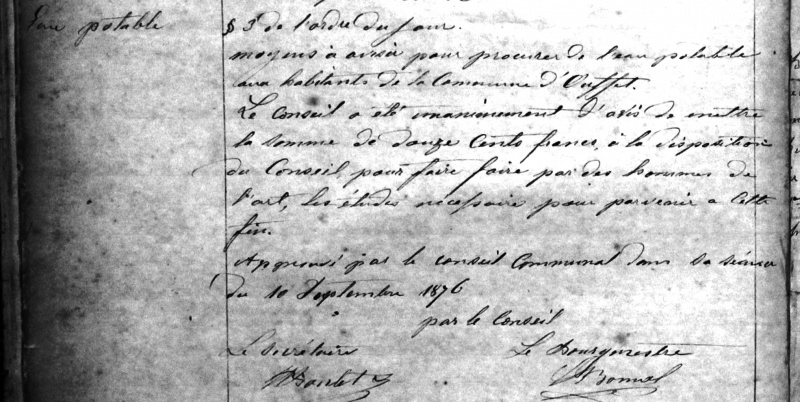 Eau potable
§ 3 de l'ordre du jour.
moyens à avisér pour procurer de l'eau potable
aux habitants de la Commune d'Ouffet.
Le Conseil a été unanimement d'avis de mettre
la somme de douze Cents francs, à la disposition
du Conseil, pour faire faire par des hommes de
l'art, les études nécessaire pour parvenir a cette
fin.
Approuvé par le conseil Communal dans sa séance
du 10 Septembre 1876
par le Conseil
Le Secrétaire
Le Bourgmestre